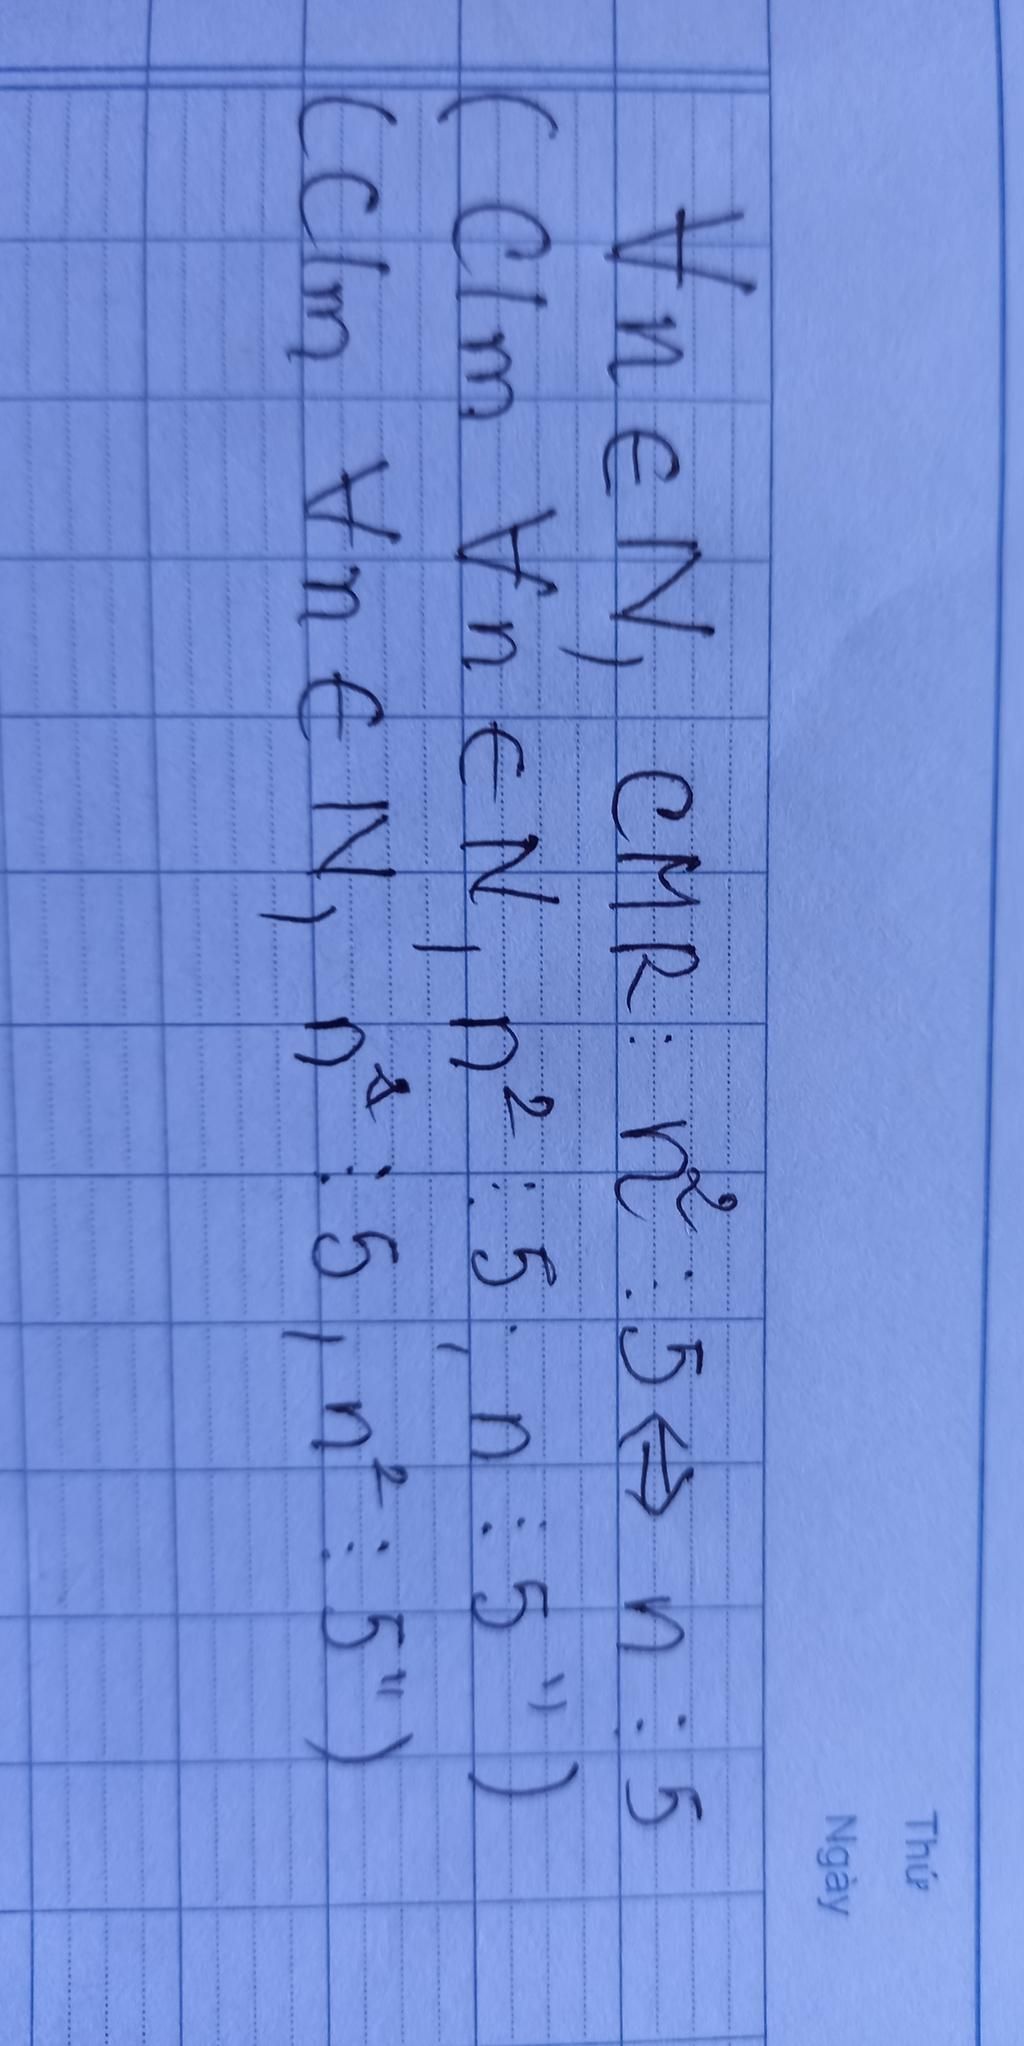 Thứ
Ngày
∀n∈N, CMR: n² ⋮ 5 ⇔ n ⋮ 5
( C/m ∀n ∈ N, n² ⋮ 5, n ⋮ 5")
(C/m ∀n ∈ N, n ⋮ 5, n² ⋮ 5")